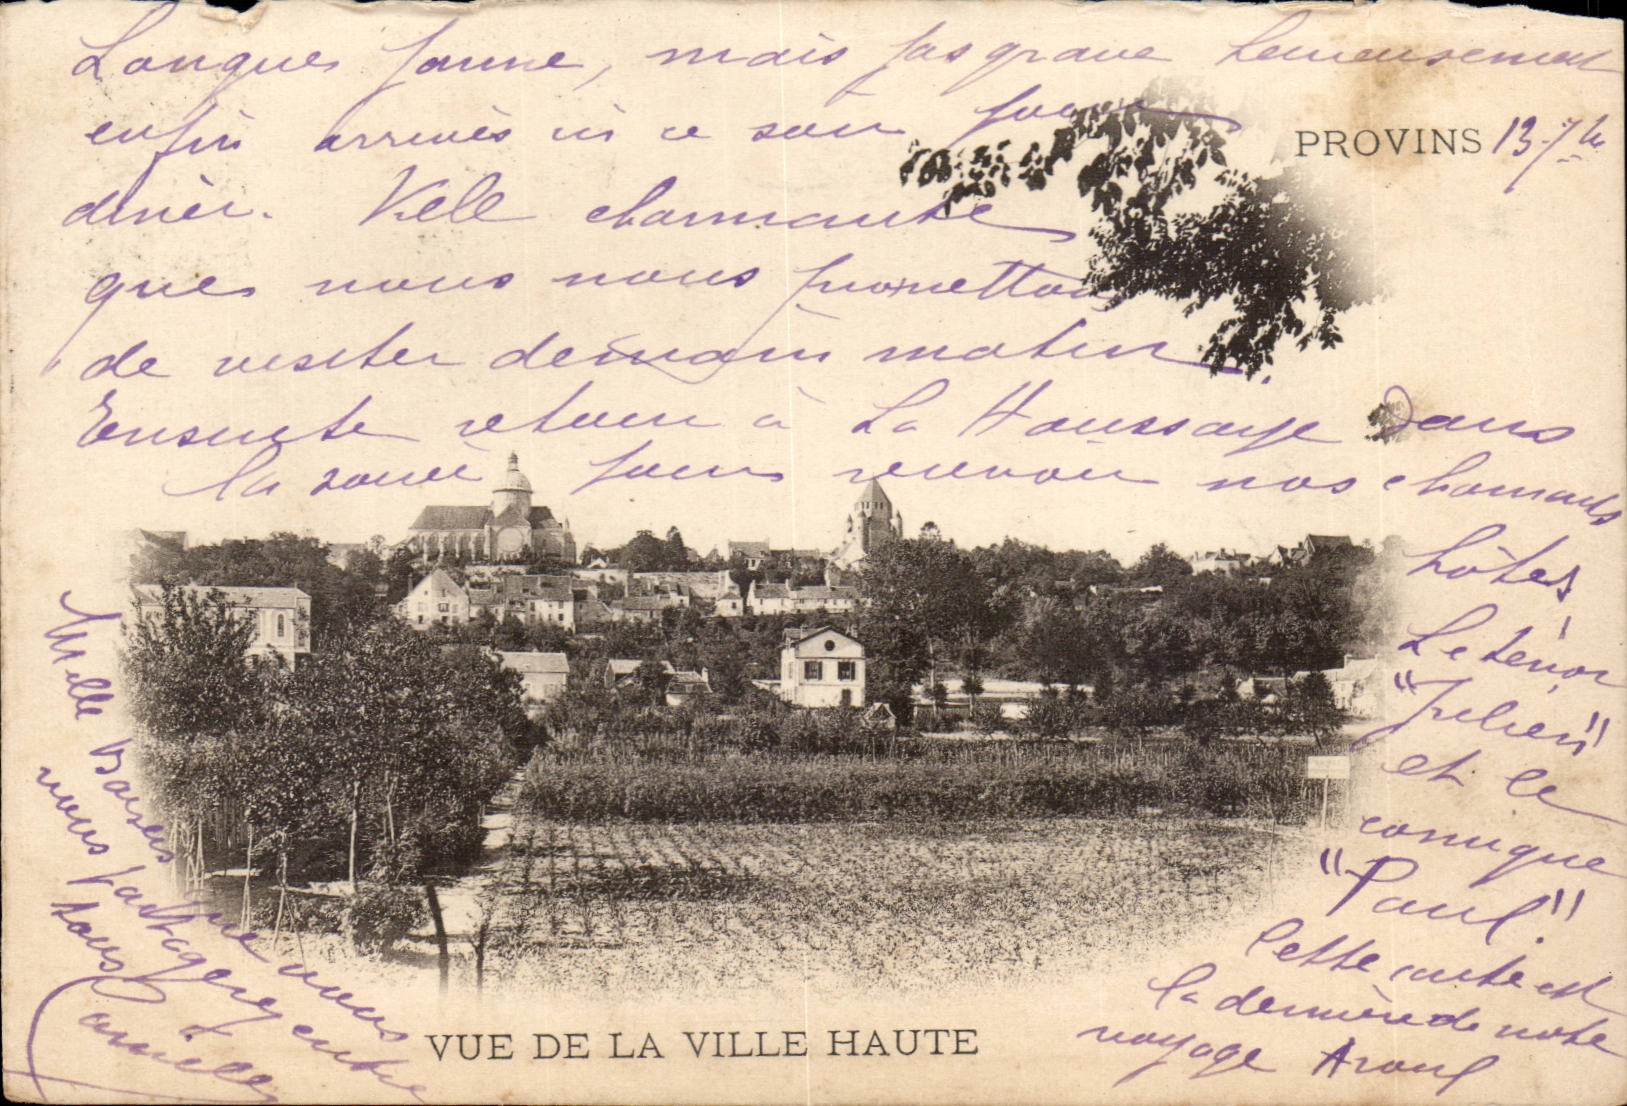 Longue panne, mais pas grave heureusement
enfin arrivés ici ce soir pour
PROVINS 13 7bre
diner. Ville charmante
que nous nous promettons
de visiter demain matin.
Ensuite retour à La Houssaye dans
la soirée pour recevoir nos charmants
hôtes,
Le ténor
"Julien"
et le
comique
"Paul"!
Cette carte est
la dernière de notre
voyage Araoul
Mille Baisers que vous
vous partagerez entre
tous
Camille
VUE DE LA VILLE HAUTE